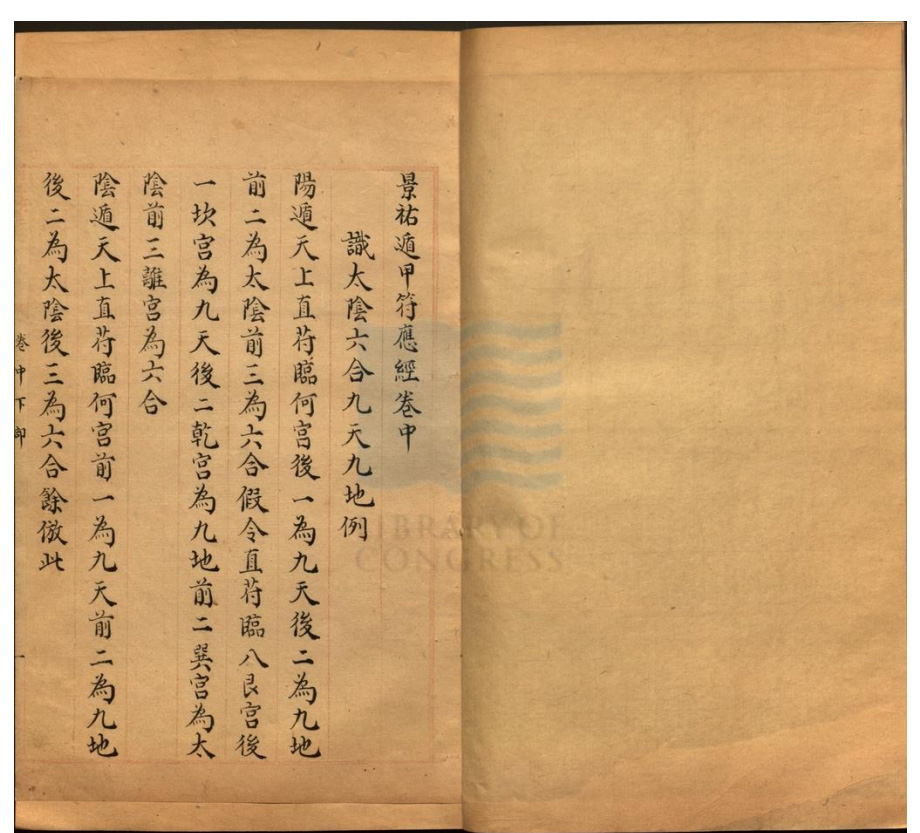 景祐遁甲符應經卷中
識太陰六合九天九地例
陽遁天上直苻臨何宮後一為九天後二為九地
前二為太陰前三為六合假令直苻臨八艮宮後
一坎宮為九天後二乾宮為九地前二巽宮為太
陰前三離宮為六合
陰遁天上直苻臨何宮前一為九天前二為九地
後二為太陰後三為六合餘倣此
卷中下卽
一
LIBRARY OF
CONGRESS